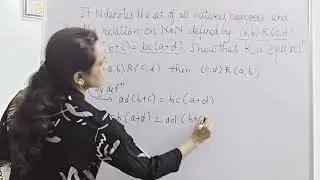 If N denotes the set of all natural numbers and
relation on N×N defined by (a,b) R (c,d)
(b+c) = bc(a+d). Show that R is equi
(a,b) R (c,d) then (c,d) R (a,b)
By defⁿ
ad(b+c) = bc(a+d)
b(a+d) = ad(b+c